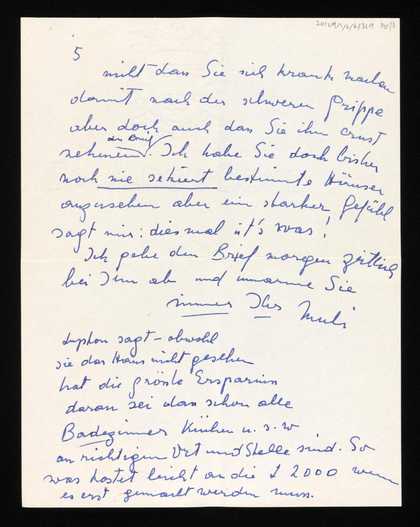 5
nicht dass Sie sich krank machen
damit nach der schweren Grippe
aber doch auch dass Sie ihn ernst
den Brief
nehmen. Ich habe Sie doch bisher
noch nie sekiert bestimmte Häuser
anzusehen aber ein starker Gefühl
sagt mir: diesmal it's was!
Ich gebe den Brief morgen zeitlich
bei Ihm ab und umarme Sie
immer Ihr Muli
sagt – obwohl
sie das Haus nicht gesehen
hat die grösste Ersparnis
daran sei dass schon alle
Badezimmer Küchen u.s.w
an richtigen Ort und Stelle sind. So
was kostet leicht an die £ 2000 wenn
es erst gemacht werden muss.